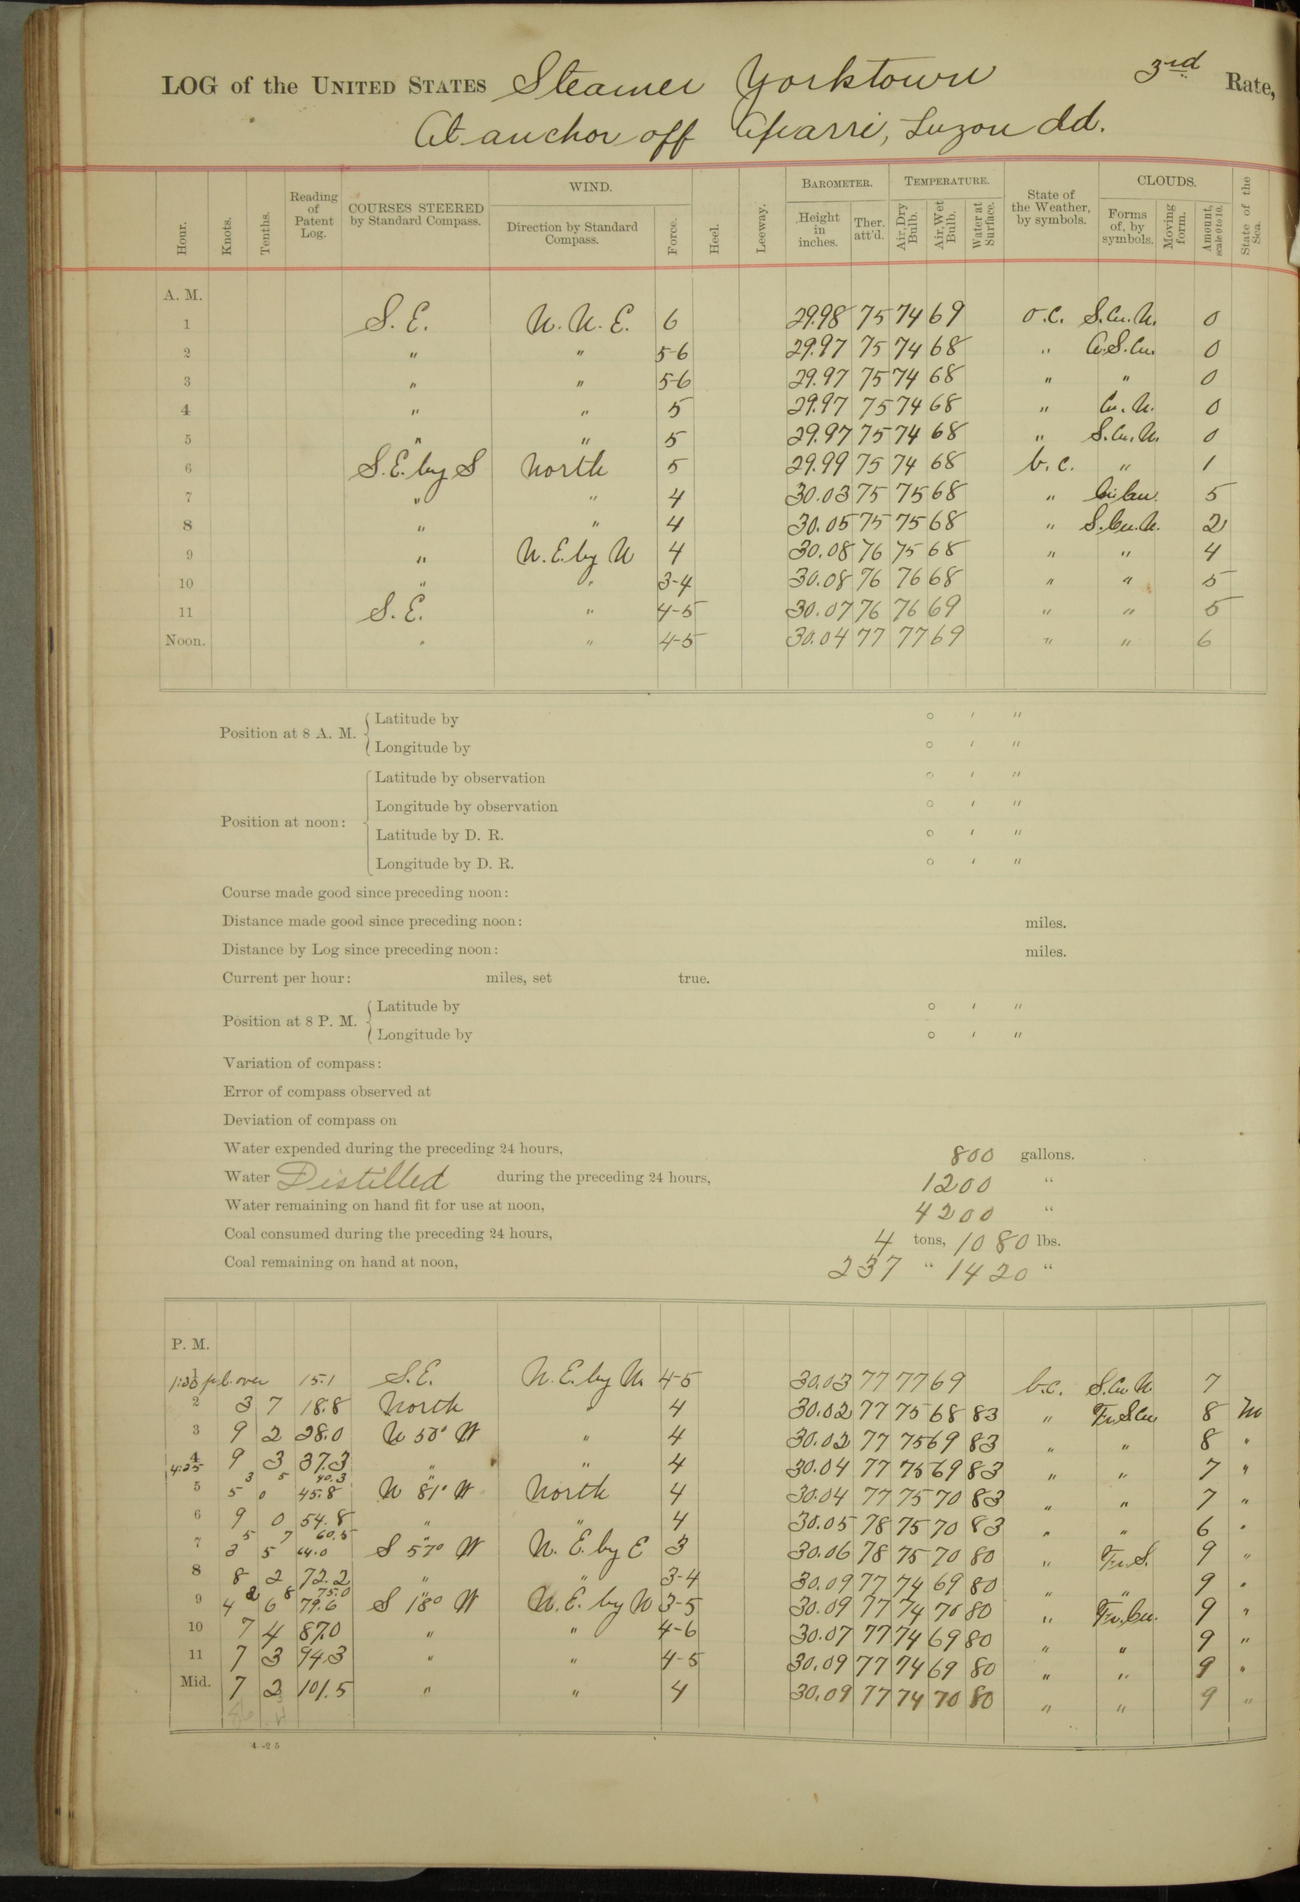 LOG of the UNITED STATES Steamer Yorktown 3rd Rate,
At anchor off Aparri, Luzon Id.
Hour. Knots. Tenths. Reading of Patent Log. COURSES STEERED by Standard Compass. WIND. Direction by Standard Compass. Force. Heel. Leeway. BAROMETER. Height in inches. Ther. att'd. TEMPERATURE. Air, Dry Bulb. Air, Wet Bulb. Water at Surface. State of the Weather, by symbols. CLOUDS. Forms of, by symbols. Moving form. Amount, scale 0 to 10. State of the Sea.
A. M.
1 S. E. N. N. E. 6 29.98 75 74 69 o.c. S.Cu.N. 0
2 " " 5-6 29.97 75 74 68 " S.Cu. 0
3 " " 5-6 29.97 75 74 68 " " 0
4 " " 5 29.97 75 74 68 " Cu. N. 0
5 " " 5 29.97 75 74 68 " S.Cu.N. 0
6 S.E. by S North 5 29.99 75 74 68 b.c. " 1
7 " " 4 30.03 75 75 68 " Ci.Cu. 5
8 " " 4 30.05 75 75 68 " S.Cu.N. 2
9 " N.E. by N 4 30.08 76 75 68 " " 4
10 " " 3-4 30.08 76 76 68 " " 5
11 S. E. " 4-5 30.07 76 76 69 " " 5
Noon. " " 4-5 30.04 77 77 69 " " 6
Position at 8 A. M. Latitude by ° ′ ″
Longitude by ° ′ ″
Position at noon: Latitude by observation ° ′ ″
Longitude by observation ° ′ ″
Latitude by D. R. ° ′ ″
Longitude by D. R. ° ′ ″
Course made good since preceding noon:
Distance made good since preceding noon: miles.
Distance by Log since preceding noon: miles.
Current per hour: miles, set true.
Position at 8 P. M. Latitude by ° ′ ″
Longitude by ° ′ ″
Variation of compass:
Error of compass observed at
Deviation of compass on
Water expended during the preceding 24 hours, 800 gallons.
Water Distilled during the preceding 24 hours, 1200 "
Water remaining on hand fit for use at noon, 4200 "
Coal consumed during the preceding 24 hours, 4 tons, 1080 lbs.
Coal remaining on hand at noon, 237 " 1420 "
P. M.
1 p.l. over 15.1 S.E. N.E. by N. 4-5 30.03 77 77 69 b.c. S.Cu.N 7
2 3 7 18.8 North " 4 30.02 77 75 68 83 " Fr.S.Cu 8 m
3 9 2 28.0 N 50° W " 4 30.02 77 75 69 83 " " 8 "
4 9 3 37.3 " " 4 30.04 77 75 69 83 " " 7 "
4:25 3 5 40.3
5 5 0 45.8 N 81° W North 4 30.04 77 75 70 83 " " 7 "
6 9 0 54.8 " " 4 30.05 78 75 70 83 " " 6 "
5 7 60.5
7 3 5 64.0 S 57° W N. E. by E 3 30.06 78 75 70 80 " Fr.S. 9 "
8 8 2 72.2 " " 3-4 30.09 77 74 69 80 " " 9 "
2 8 75.0
9 4 6 79.6 S 18° W N.E. by N 3-5 30.09 77 74 70 80 " Fr.Cu. 9 "
10 7 4 87.0 " " 4-6 30.07 77 74 69 80 " " 9 "
11 7 3 94.3 " " 4-5 30.09 77 74 69 80 " " 9 "
Mid. 7 2 101.5 " " 4 30.09 77 74 70 80 " " 9 "
86 .4
4-25